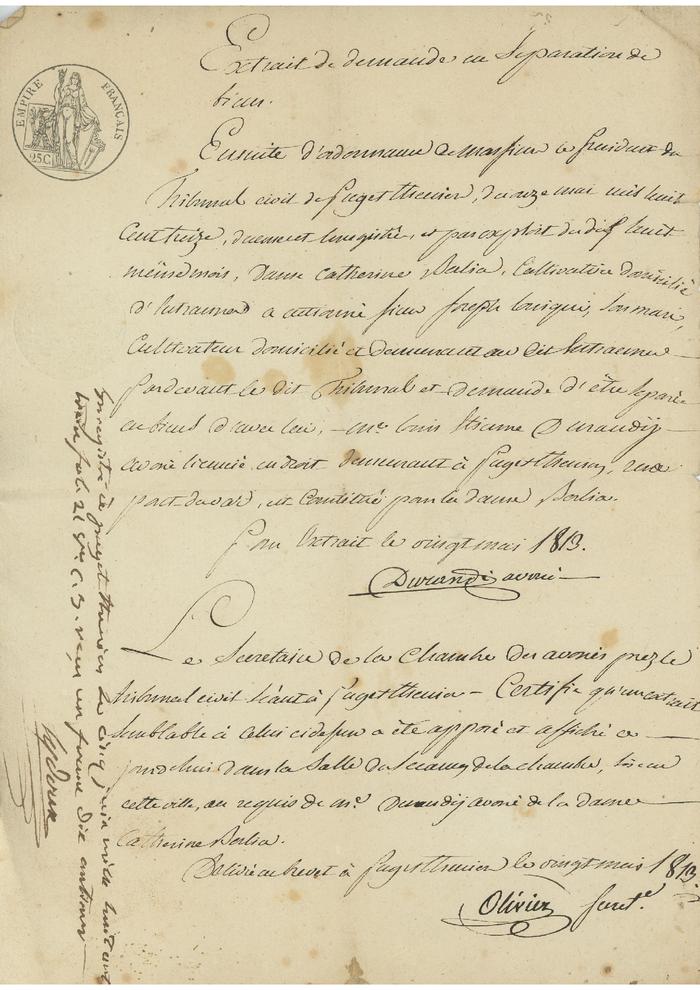 EMPIRE FRANÇAIS
25C
Extrait de demande en Separation de
biens.
Ensuite d'ordonnance de Monsieur le President du
Tribunal civil de Puget theniers, du onze mai mil huit
Cent treize, duement Enregistrée, et par exploit du dix huit
même mois, Dame Catherine Berlia, Cultivatrice domicilié
d'Entraunes a actionné sieur Joseph Louiqui, Son mari,
Cultivateur domicilié et demeurant au dit Entraunes
Pardevant le dit Tribunal et demande d'être separée
en biens d'avec lui, me Louis Etienne Durandÿ
avoué licencié en droit demeurant à Puget theniers, rue
part du var, est Constitué pour la dame Berlia.
Pour Extrait le vingt mai 1813.
Durandi avoué
Le Secretaire de la Chambre des avoués prez le
tribunal civil séant à Puget theniers Certifie qu'un extrait
Semblable à Celui cidessus a été apposé et affiché ce
jourdhui dans la Salle du Sceaux de la chambre, sise en
cette ville, au requis de me Durandÿ avoué de la dame
Catherine Berlia.
Delivré au brevet à Puget theniers le vingt mai 1813
Olivier Secret.re
Enregistré à puget theniers le cinq juin mil huit cent
treize fol. 21 C. 3. reçu un franc dix centimes